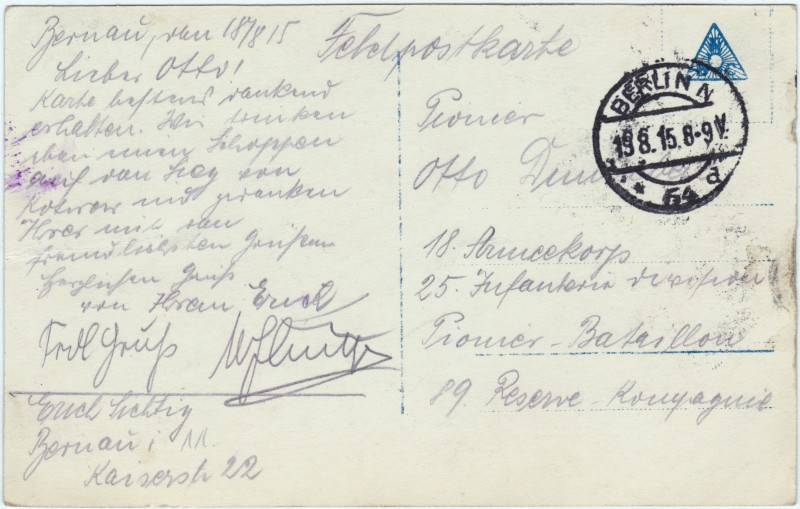 Bernau, den 18/8 15
Lieber Otto!
Karte bestens dankend
erhalten. Wir trinken
eben einen Schoppen
auf den Sieg von
Kowno und gedenken
Ihrer mit den
freundlichsten Grüßen
Herzlichen Gruß
von Ihrem Erich
Frdl Gruß
Erich Lichtig
Bernau i
Kaiserstr 22
Feldpostkarte
BERLIN N
19.8.15.8-9V.
* 64 d
Pionier
Otto
18. Armeekorps
25. Infanterie division
Pionier-Bataillon
89. Reserve-Kompagnie